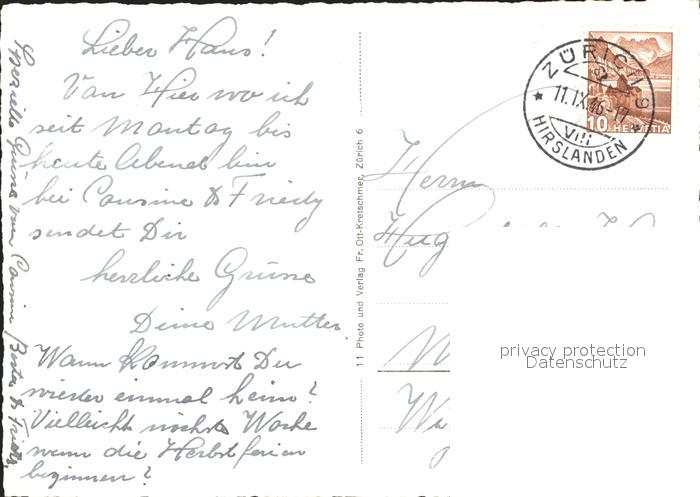 Lieber Hans!
Van Hier wo ich
seit Montag bis
heute Abend bin
bei Cousine & Friedy
sendet Dir
herzliche Grüsse
Deine Mutter
Wann kommst Du
wieder einmal heim?
Vielleicht nächste Woche
wenn die Herbstferien
beginnen?
Spezielle Grüsse von Cousine
11 Photo und Verlag Fr. Ott-Kretschmer, Zürich 6
ZÜRICH 9
11.IX. 16-17
VIII
HIRSLANDEN
10 HELVETIA
Herrn
Hug
privacy protection
Datenschutz